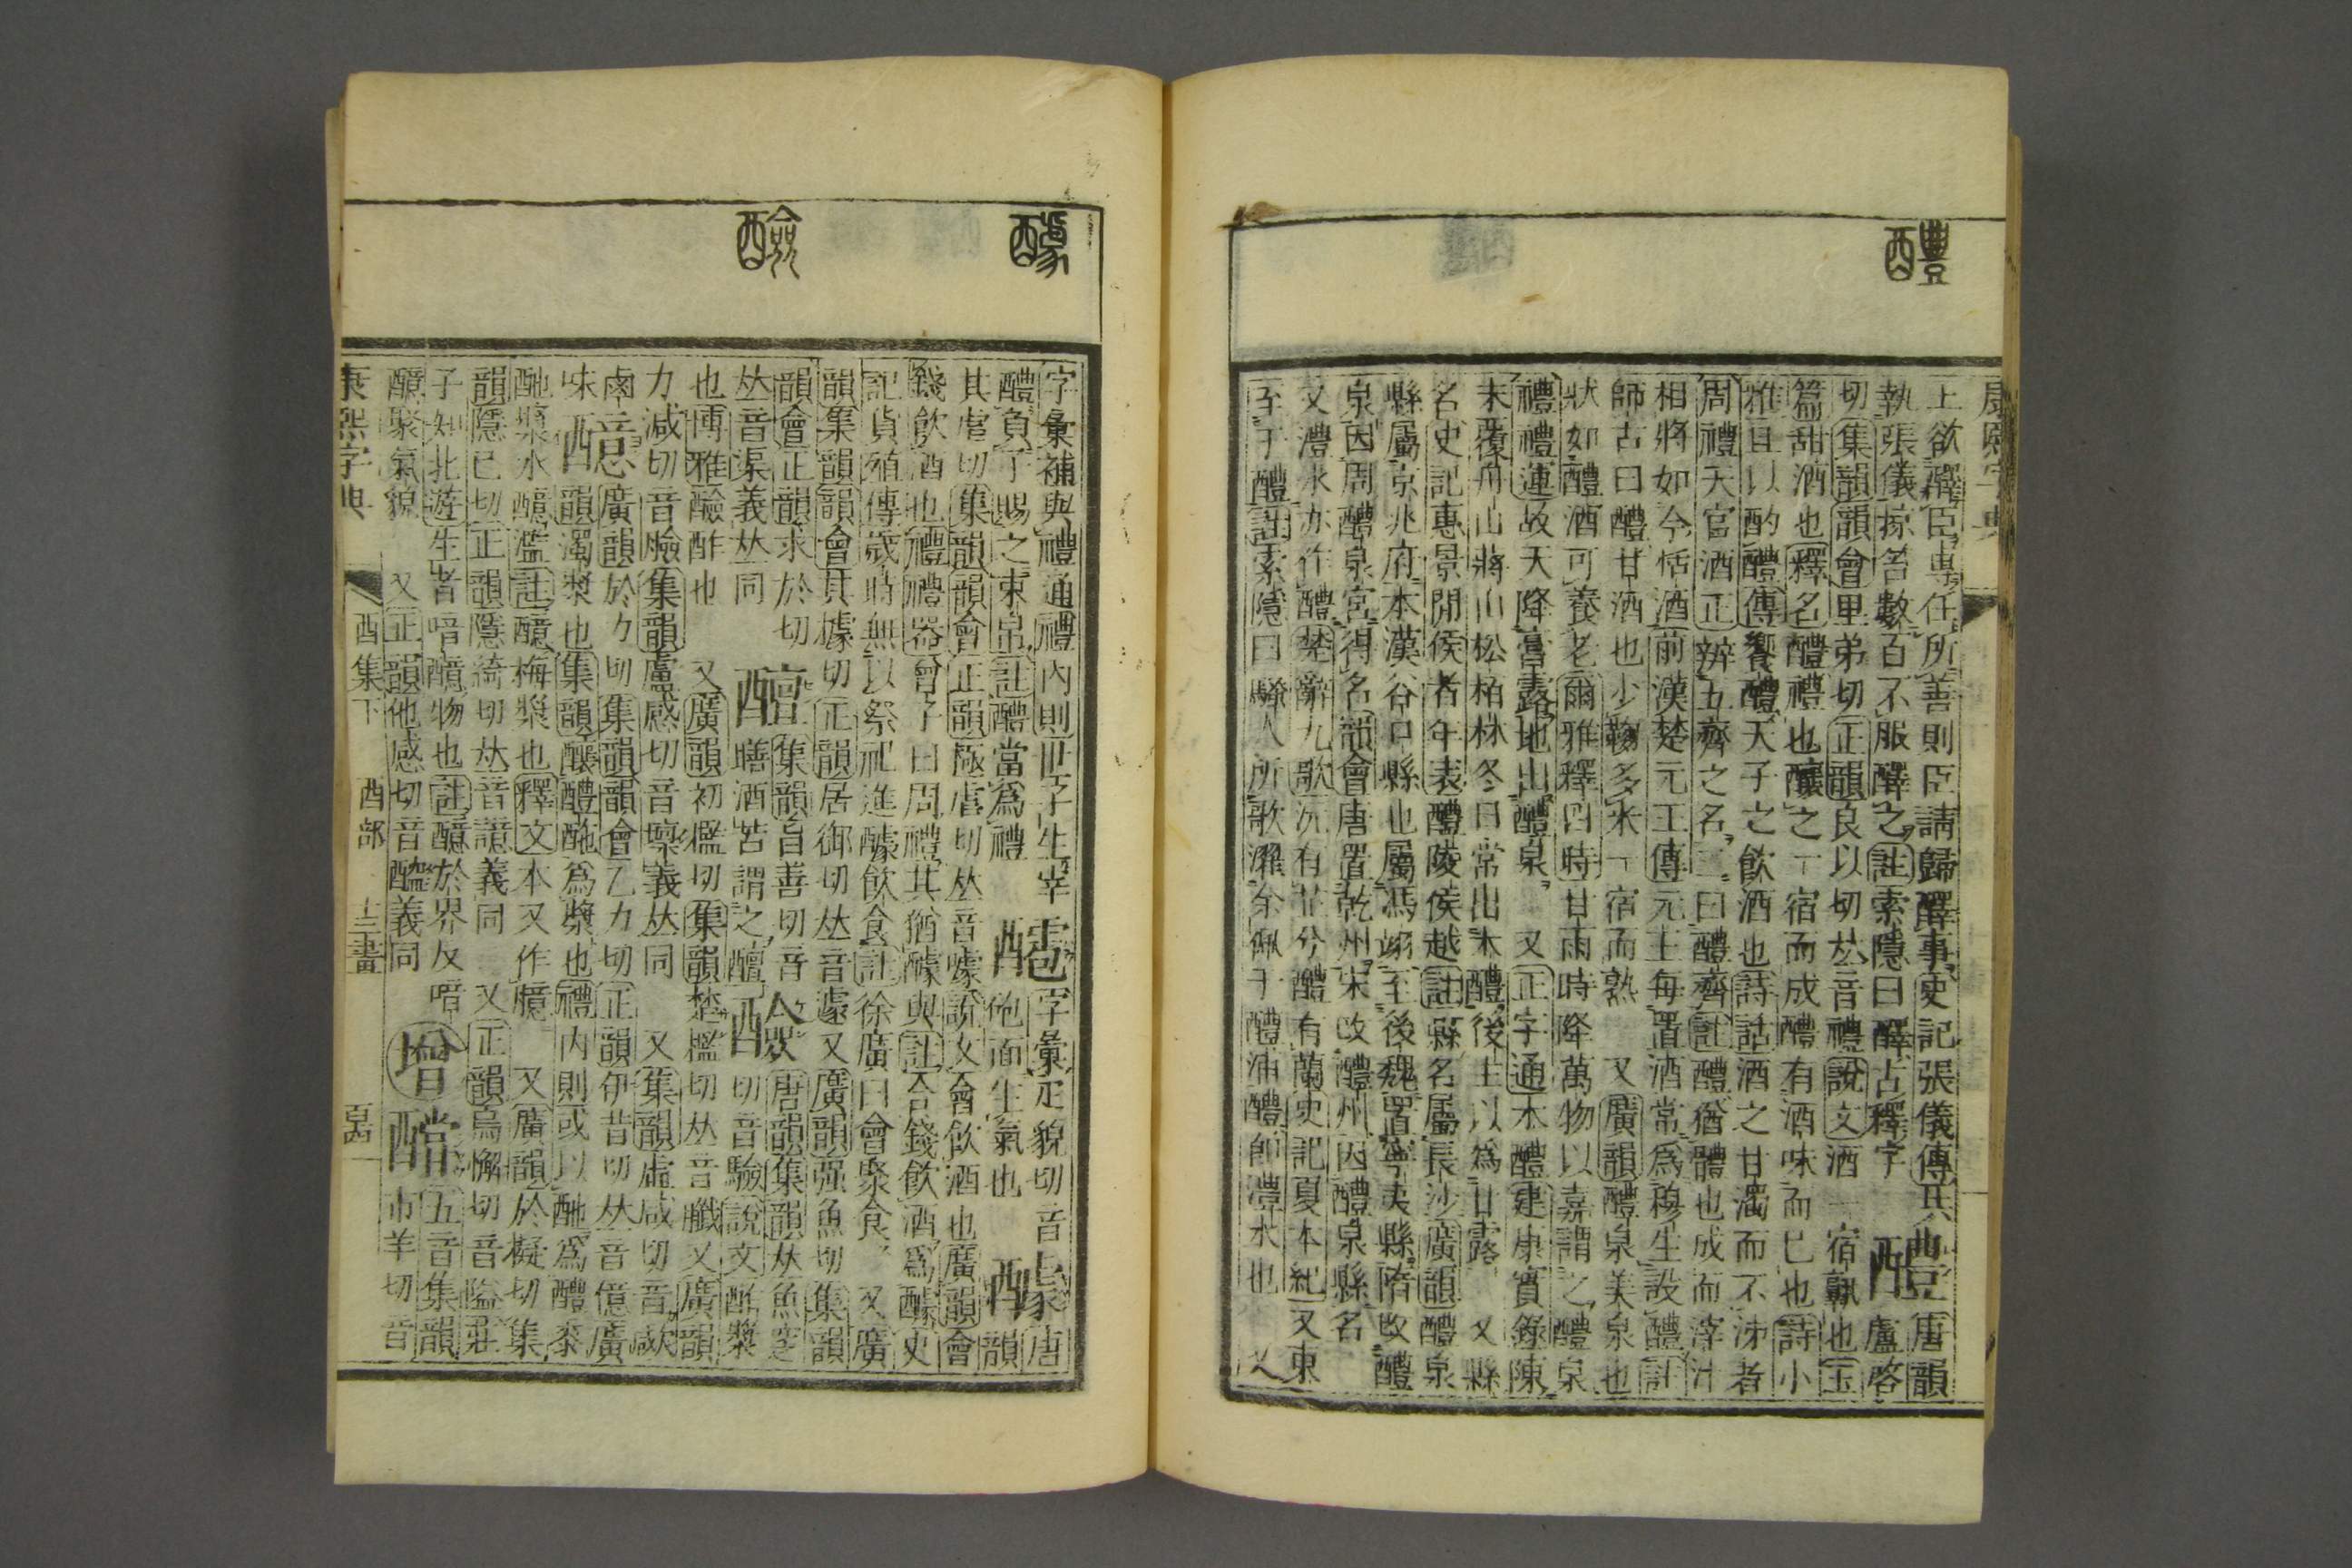 醴
康熙字典
上欲釋臣專任所善則臣請歸醳事史記張儀傳共 醴 唐韻
執張儀掠笞數百不服醳之註索隱曰醳古釋字 盧啓
切集韻韻會里弟切正韻良以切𠀤音禮說文酒一宿孰也玉
篇甜酒也釋名醴禮也釀之一宿而成醴有酒味而已也詩小
雅且以酌醴傳饗醴天子之飲酒也詩詁酒之甘濁而不泲者
周禮天官酒正辨五齊之名二曰醴齊註醴猶體也成而滓汁
相將如今恬酒前漢楚元王傳元王每置酒常爲穆生設醴註
師古曰醴甘酒也少麴多米一宿而熟 又廣韻醴泉美泉也
狀如醴酒可養老爾雅釋四時甘雨時降萬物以嘉謂之醴泉
禮禮運故天降膏露地出醴泉 又正字通木醴建康實錄陳
末覆舟山蔣山松柏林冬日常出木醴後主以爲甘露 又縣
名史記惠景閒侯者年表醴陵侯越註縣名屬長沙廣韻醴泉
縣屬京兆府本漢谷口縣也屬馮翊至後魏置寧夷縣隋改醴
泉因周醴泉宮得名韻會唐置乾州宋改醴州因醴泉縣名
又澧水亦作醴楚辭九歌沅有茝兮醴有蘭史記夏本紀又東
至于醴註索隱曰騷人所歌濯余佩于醴浦醴卽澧水也 又
醵
醶
字彙補與禮通禮內則世子生宰 䨌 字彙疋貌切音 醵 唐
醴負子賜之束帛註醴當爲禮 皰面生氣也 韻
其虐切集韻韻會正韻極虐切𠀤音噱說文會飲酒也廣韻會
錢飲酒也禮禮器曾子曰周禮其猶醵與註合錢飲酒爲醵史
記貨殖傳歲時無以祭祀進醵飲食註徐廣曰會聚食 又廣
韻集韻韻會其據切正韻居御切𠀤音遽又廣韻强魚切集韻
韻會正韻求於切 醰 集韻自善切音 醶 唐韻集韻𠀤魚窆
𠀤音渠義𠀤同 膳酒苦謂之醰 切音驗說文酢漿
也博雅醶酢也 又廣韻初檻切集韻楚檻切𠀤音黤又廣韻
力減切音臉集韻盧感切音壈義𠀤同 又集韻虛咸切音𣣺
鹵 醷 廣韻於力切集韻韻會乙力切正韻伊昔切𠀤音億廣
味 韻濁漿也集韻釀醴酏爲漿也禮內則或以酏爲醴黍
酏漿水醷濫註醷梅漿也釋文本又作臆 又廣韻於擬切集
韻隱已切正韻隱綺切𠀤音譩義同 又正韻烏懈切音隘莊
子知北遊生者喑醷物也註醷於界反喑 增 醻 五音集韻
醷聚氣貌 又正韻他感切音醓義同 市羊切音
康熙字典 酉集下 酉部 十三畫